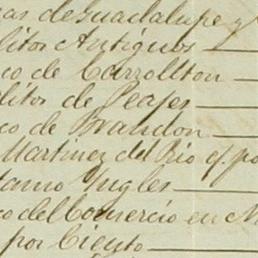 as de Guadalupe y
ditos Antiguos
co de Carrollton
ditos de Peajes
co de Brandon
Martinez del Rio
tamo Yngles
co del Comercio en
por Ciento